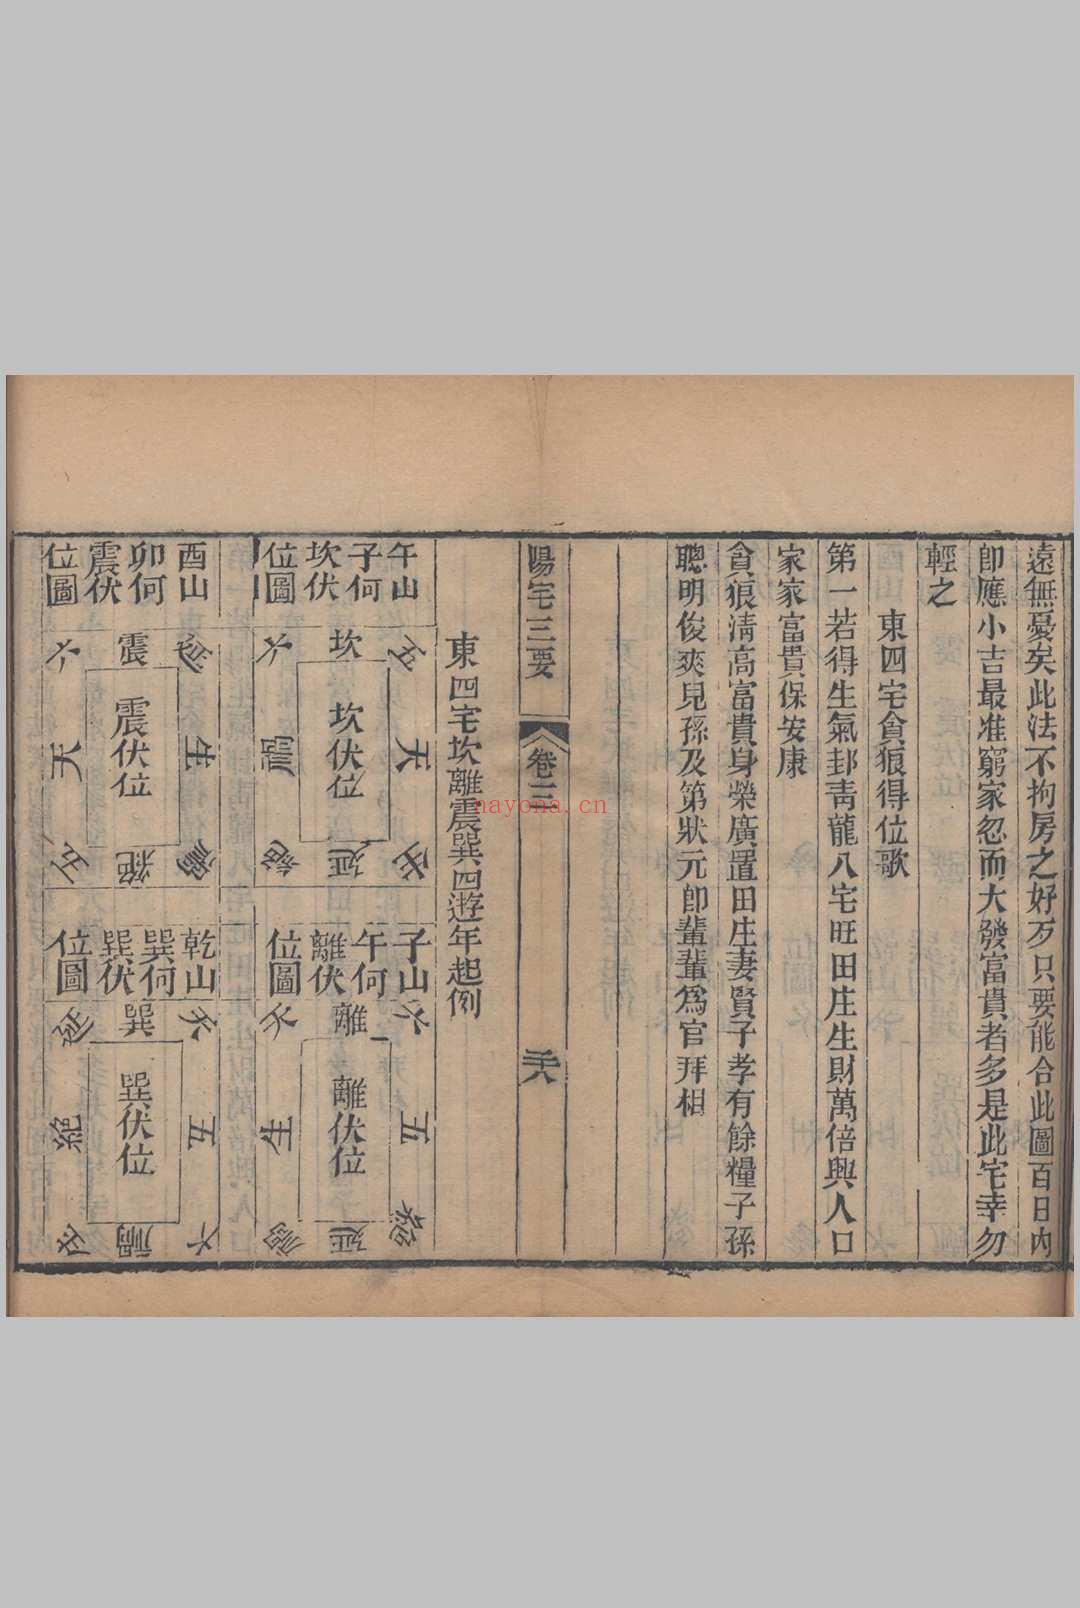 遠無憂矣此法不拘房之好歹只要能合此圖百日內
卽應小吉最准窮家忽而大發富貴者多是此宅幸勿
輕之
東四宅貪狼得位歌
第一若得生氣卦靑龍入宅旺田庄生財萬倍興人口
家家富貴保安康
貪狼淸高富貴身榮廣置田庄妻賢子孝有餘糧子孫
聰明俊爽兒孫及第狀元卽輩輩爲官拜相
陽宅三要
卷三
天
東四宅坎離震巽四遊年起例
午山
子何
坎伏
位圖
坎
坎伏位
天
延
絕
禍
六
子山
午何
離伏
位圖
離
離伏位
五
絕
延
禍
生
天
六
酉山
卯何
震伏
位圖
震
震伏位
生
禍
絕
五
天
六
乾山
巽何
巽伏
位圖
巽
巽伏位
天
五
六
禍
生
絕
延
nayona.cn